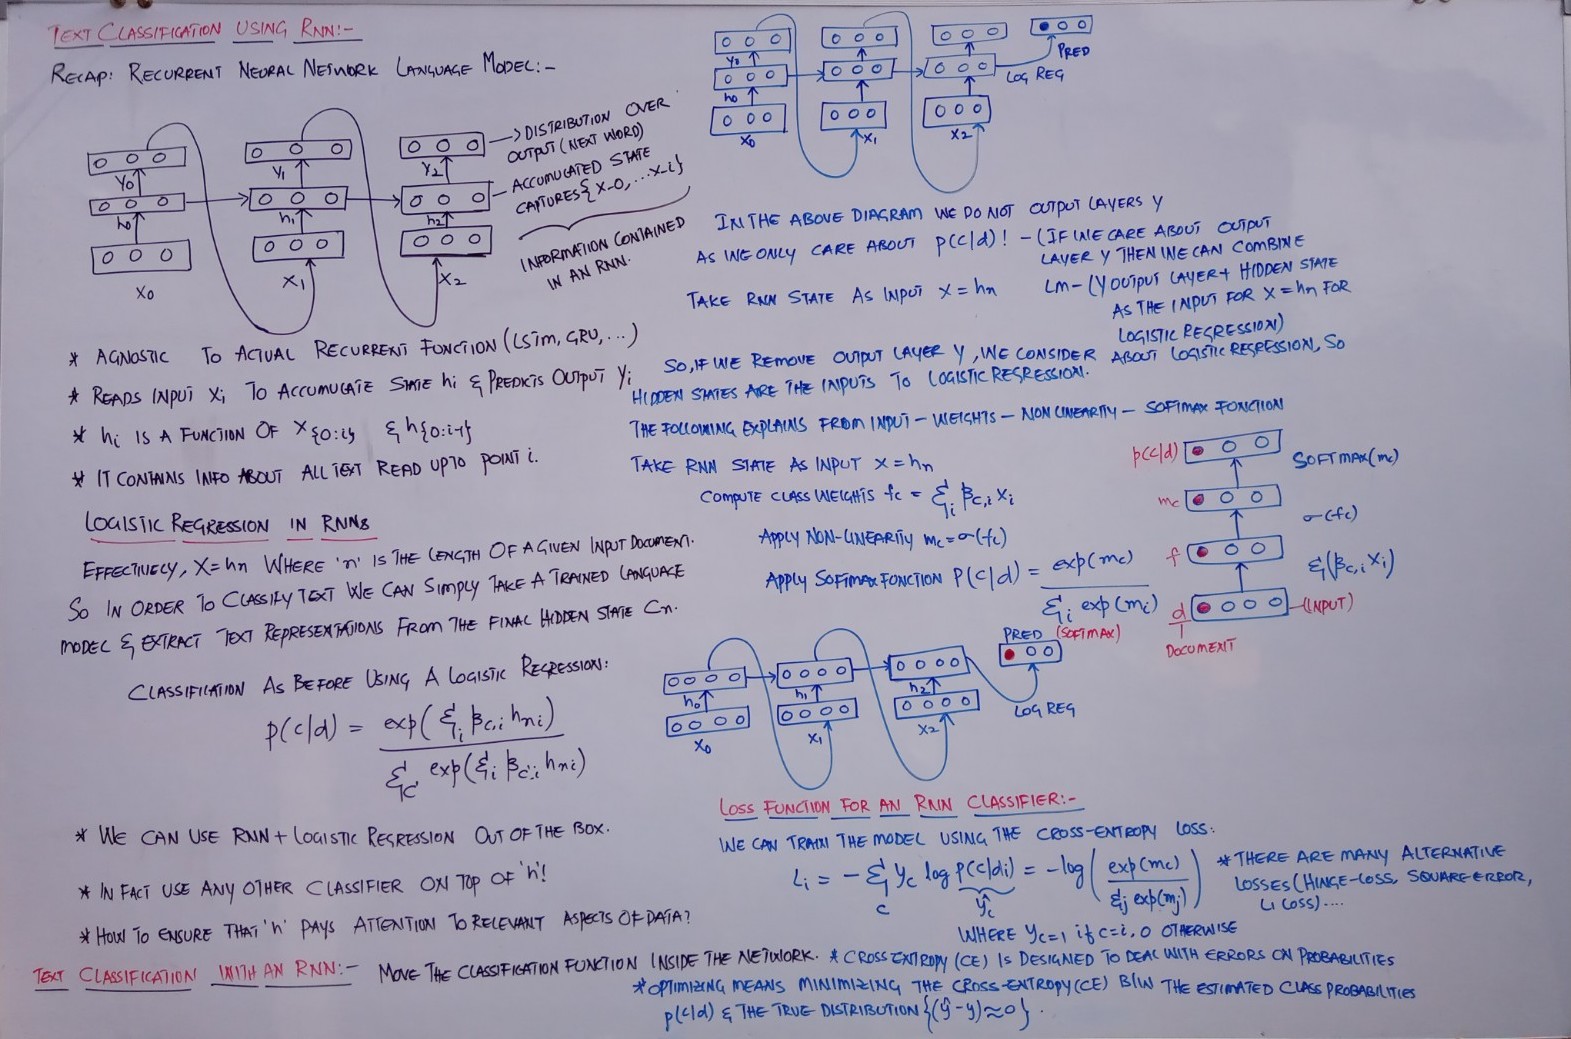 TEXT CLASSIFICATION USING RNN:-
RECAP: RECURRENT NEURAL NETWORK LANGUAGE MODEL:-
Y0
h0
X0
Y1
h1
X1
Y2
h2
X2
-> DISTRIBUTION OVER
OUTPUT (NEXT WORD)
- ACCUMULATED STATE
CAPTURES {X-0, ...X-i}
INFORMATION CONTAINED
IN AN RNN.
* AGNOSTIC TO ACTUAL RECURRENT FUNCTION (LSTM, GRU, ...)
* READS INPUT Xi TO ACCUMULATE STATE hi & PREDICTS OUTPUT Yi
* hi IS A FUNCTION OF X{0:i} & h{0:i-1}
* IT CONTAINS INFO ABOUT ALL TEXT READ UPTO POINT i.
LOGISTIC REGRESSION IN RNNs
EFFECTIVELY, X=hn WHERE 'n' IS THE LENGTH OF A GIVEN INPUT DOCUMENT.
SO IN ORDER TO CLASSIFY TEXT WE CAN SIMPLY TAKE A TRAINED LANGUAGE
MODEL & EXTRACT TEXT REPRESENTATIONS FROM THE FINAL HIDDEN STATE Cn.
CLASSIFICATION AS BEFORE USING A LOGISTIC REGRESSION:
p(c|d) = exp(Σi βc,i hni)
Σc' exp(Σi βc',i hni)
* WE CAN USE RNN + LOGISTIC REGRESSION OUT OF THE BOX.
* IN FACT USE ANY OTHER CLASSIFIER ON TOP OF 'h'!
* HOW TO ENSURE THAT 'h' PAYS ATTENTION TO RELEVANT ASPECTS OF DATA?
TEXT CLASSIFICATION WITH AN RNN:- MOVE THE CLASSIFICATION FUNCTION INSIDE THE NETWORK.
Y0
h0
X0
X1
X2
PRED
LOG REG
IN THE ABOVE DIAGRAM WE DO NOT OUTPUT LAYERS Y
AS WE ONLY CARE ABOUT p(c|d)! - (IF WE CARE ABOUT OUTPUT
LAYER Y THEN WE CAN COMBINE
TAKE RNN STATE AS INPUT X=hn
LM - (Y OUTPUT LAYER + HIDDEN STATE
AS THE INPUT FOR X=hn FOR
LOGISTIC REGRESSION)
SO, IF WE REMOVE OUTPUT LAYER Y, WE CONSIDER ABOUT LOGISTIC REGRESSION, SO
HIDDEN STATES ARE THE INPUTS TO LOGISTIC REGRESSION.
THE FOLLOWING EXPLAINS FROM INPUT - WEIGHTS - NON LINEARITY - SOFTMAX FUNCTION
TAKE RNN STATE AS INPUT X=hn
COMPUTE CLASS WEIGHTS fc = Σi βc,i Xi
APPLY NON-LINEARITY mc=σ(fc)
APPLY SOFTMAX FUNCTION P(c|d) = exp(mc)
Σi exp(mi)
p(c|d)
SOFTMAX(mc)
mc
σ(fc)
f
Σ(βc,i Xi)
d
(INPUT)
DOCUMENT
PRED (SOFTMAX)
h0
X0
h1
X1
h2
X2
LOG REG
LOSS FUNCTION FOR AN RNN CLASSIFIER:-
WE CAN TRAIN THE MODEL USING THE CROSS-ENTROPY LOSS:
Li = - Σc Yc log p(c|di) = -log( exp(mc)
Σj exp(mj) )
ŷc
WHERE Yc=1 if c=i, 0 OTHERWISE
* THERE ARE MANY ALTERNATIVE
LOSSES (HINGE-LOSS, SQUARE ERROR,
L1 LOSS)....
* CROSS ENTROPY (CE) IS DESIGNED TO DEAL WITH ERRORS ON PROBABILITIES
* OPTIMIZING MEANS MINIMIZING THE CROSS-ENTROPY (CE) B/W THE ESTIMATED CLASS PROBABILITIES
p(c|d) & THE TRUE DISTRIBUTION {(ŷ-y)≈0}.